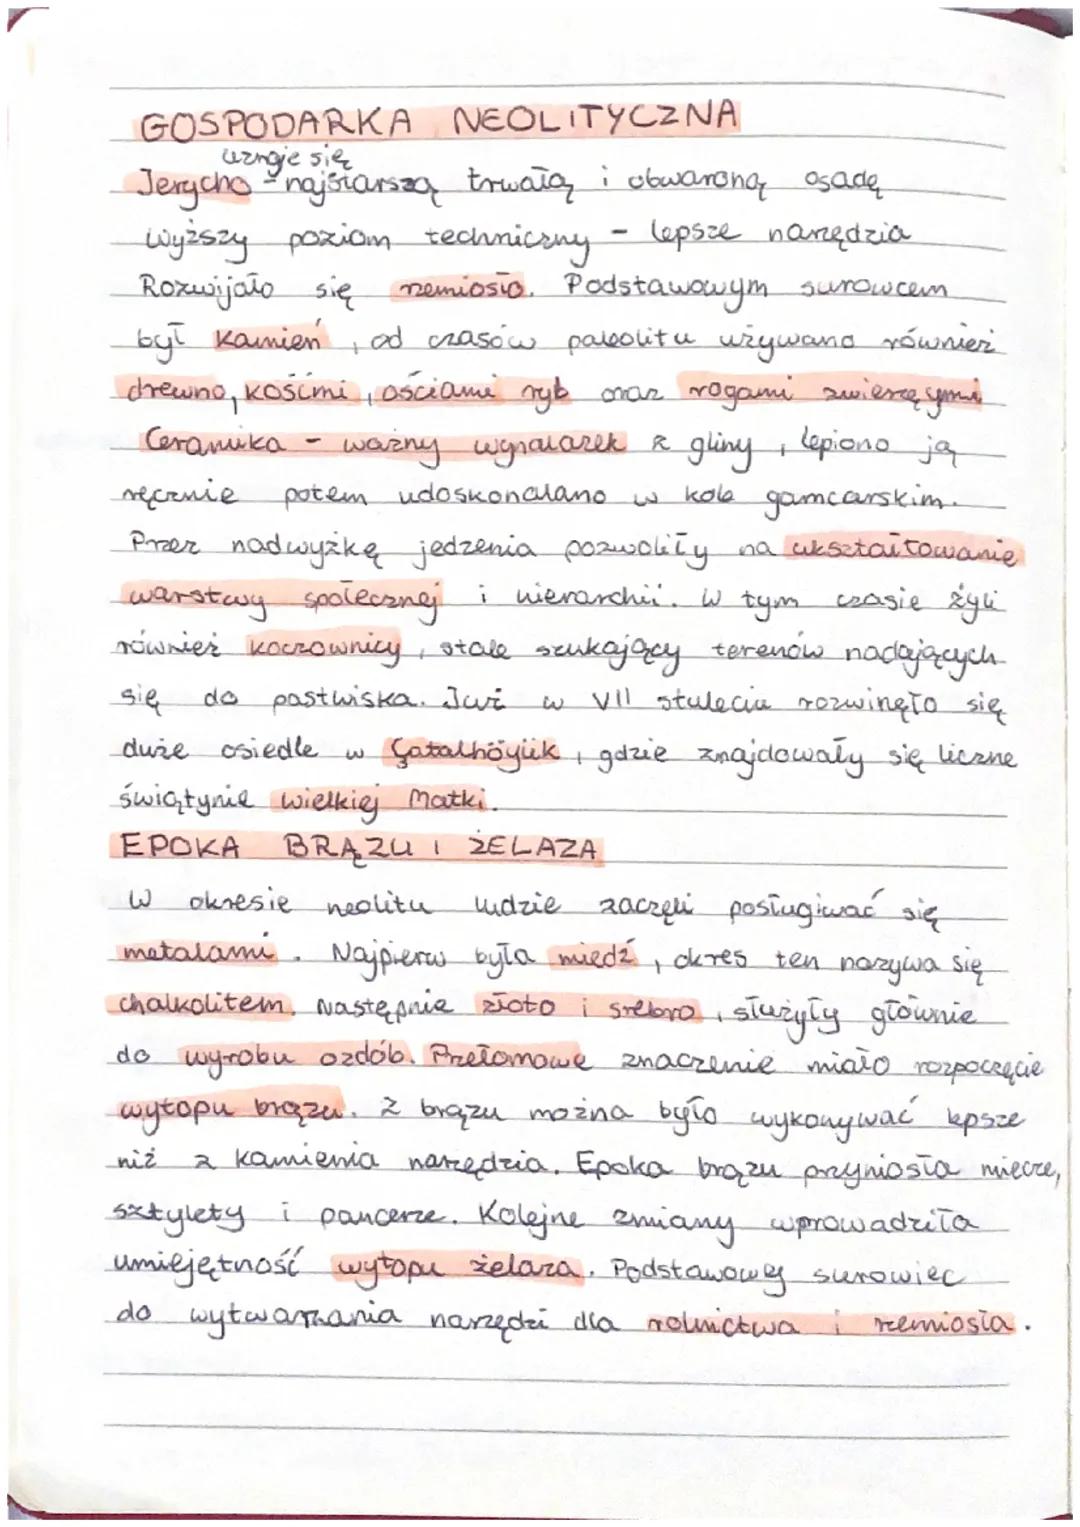 GOSPODARKA NEOLITYCZNA
uznaje się
Jerycho - najstarszą trwałą i obwaroną osadę
wyższy poziom techniczny - lepsze narzędzia
Rozwijało się rzemiosło. Podstawowym surowcem
był kamień, od czasów paleolitu używano również
drewno, kośćmi, ościami ryb oraz rogami zwierzęcymi
Ceramika - ważny wynalazek z gliny, lepiono ją
ręcznie potem udoskonalano w kole garncarskim.
Przez nadwyżkę jedzenia pozwoliły na ukształtowanie
warstwy społecznej i hierarchii. W tym czasie żyli
również koczownicy, stale szukający terenów nadających
się do pastwiska. Już w VII stuleciu rozwinęło się
duże osiedle w Çatalhöyük, gdzie znajdowały się liczne
świątynie wielkiej Matki.
EPOKA BRĄZU I ŻELAZA
W okresie neolitu ludzie zaczęli posługiwać się
metalami. Najpierw była miedź, okres ten nazywa się
chalkolitem. Następnie złoto i srebro, służyły głównie
do wyrobu ozdób. Przełomowe znaczenie miało rozpoczęcie
wytopu brązu. Z brązu można było wykonywać lepsze
niż z kamienia narzędzia. Epoka brązu przyniosła miecze,
sztylety i pancerze. Kolejne zmiany wprowadziła
umiejętność wytopu żelaza. Podstawowy surowiec
do wytwarzania narzędzi dla rolnictwa i rzemiosła.